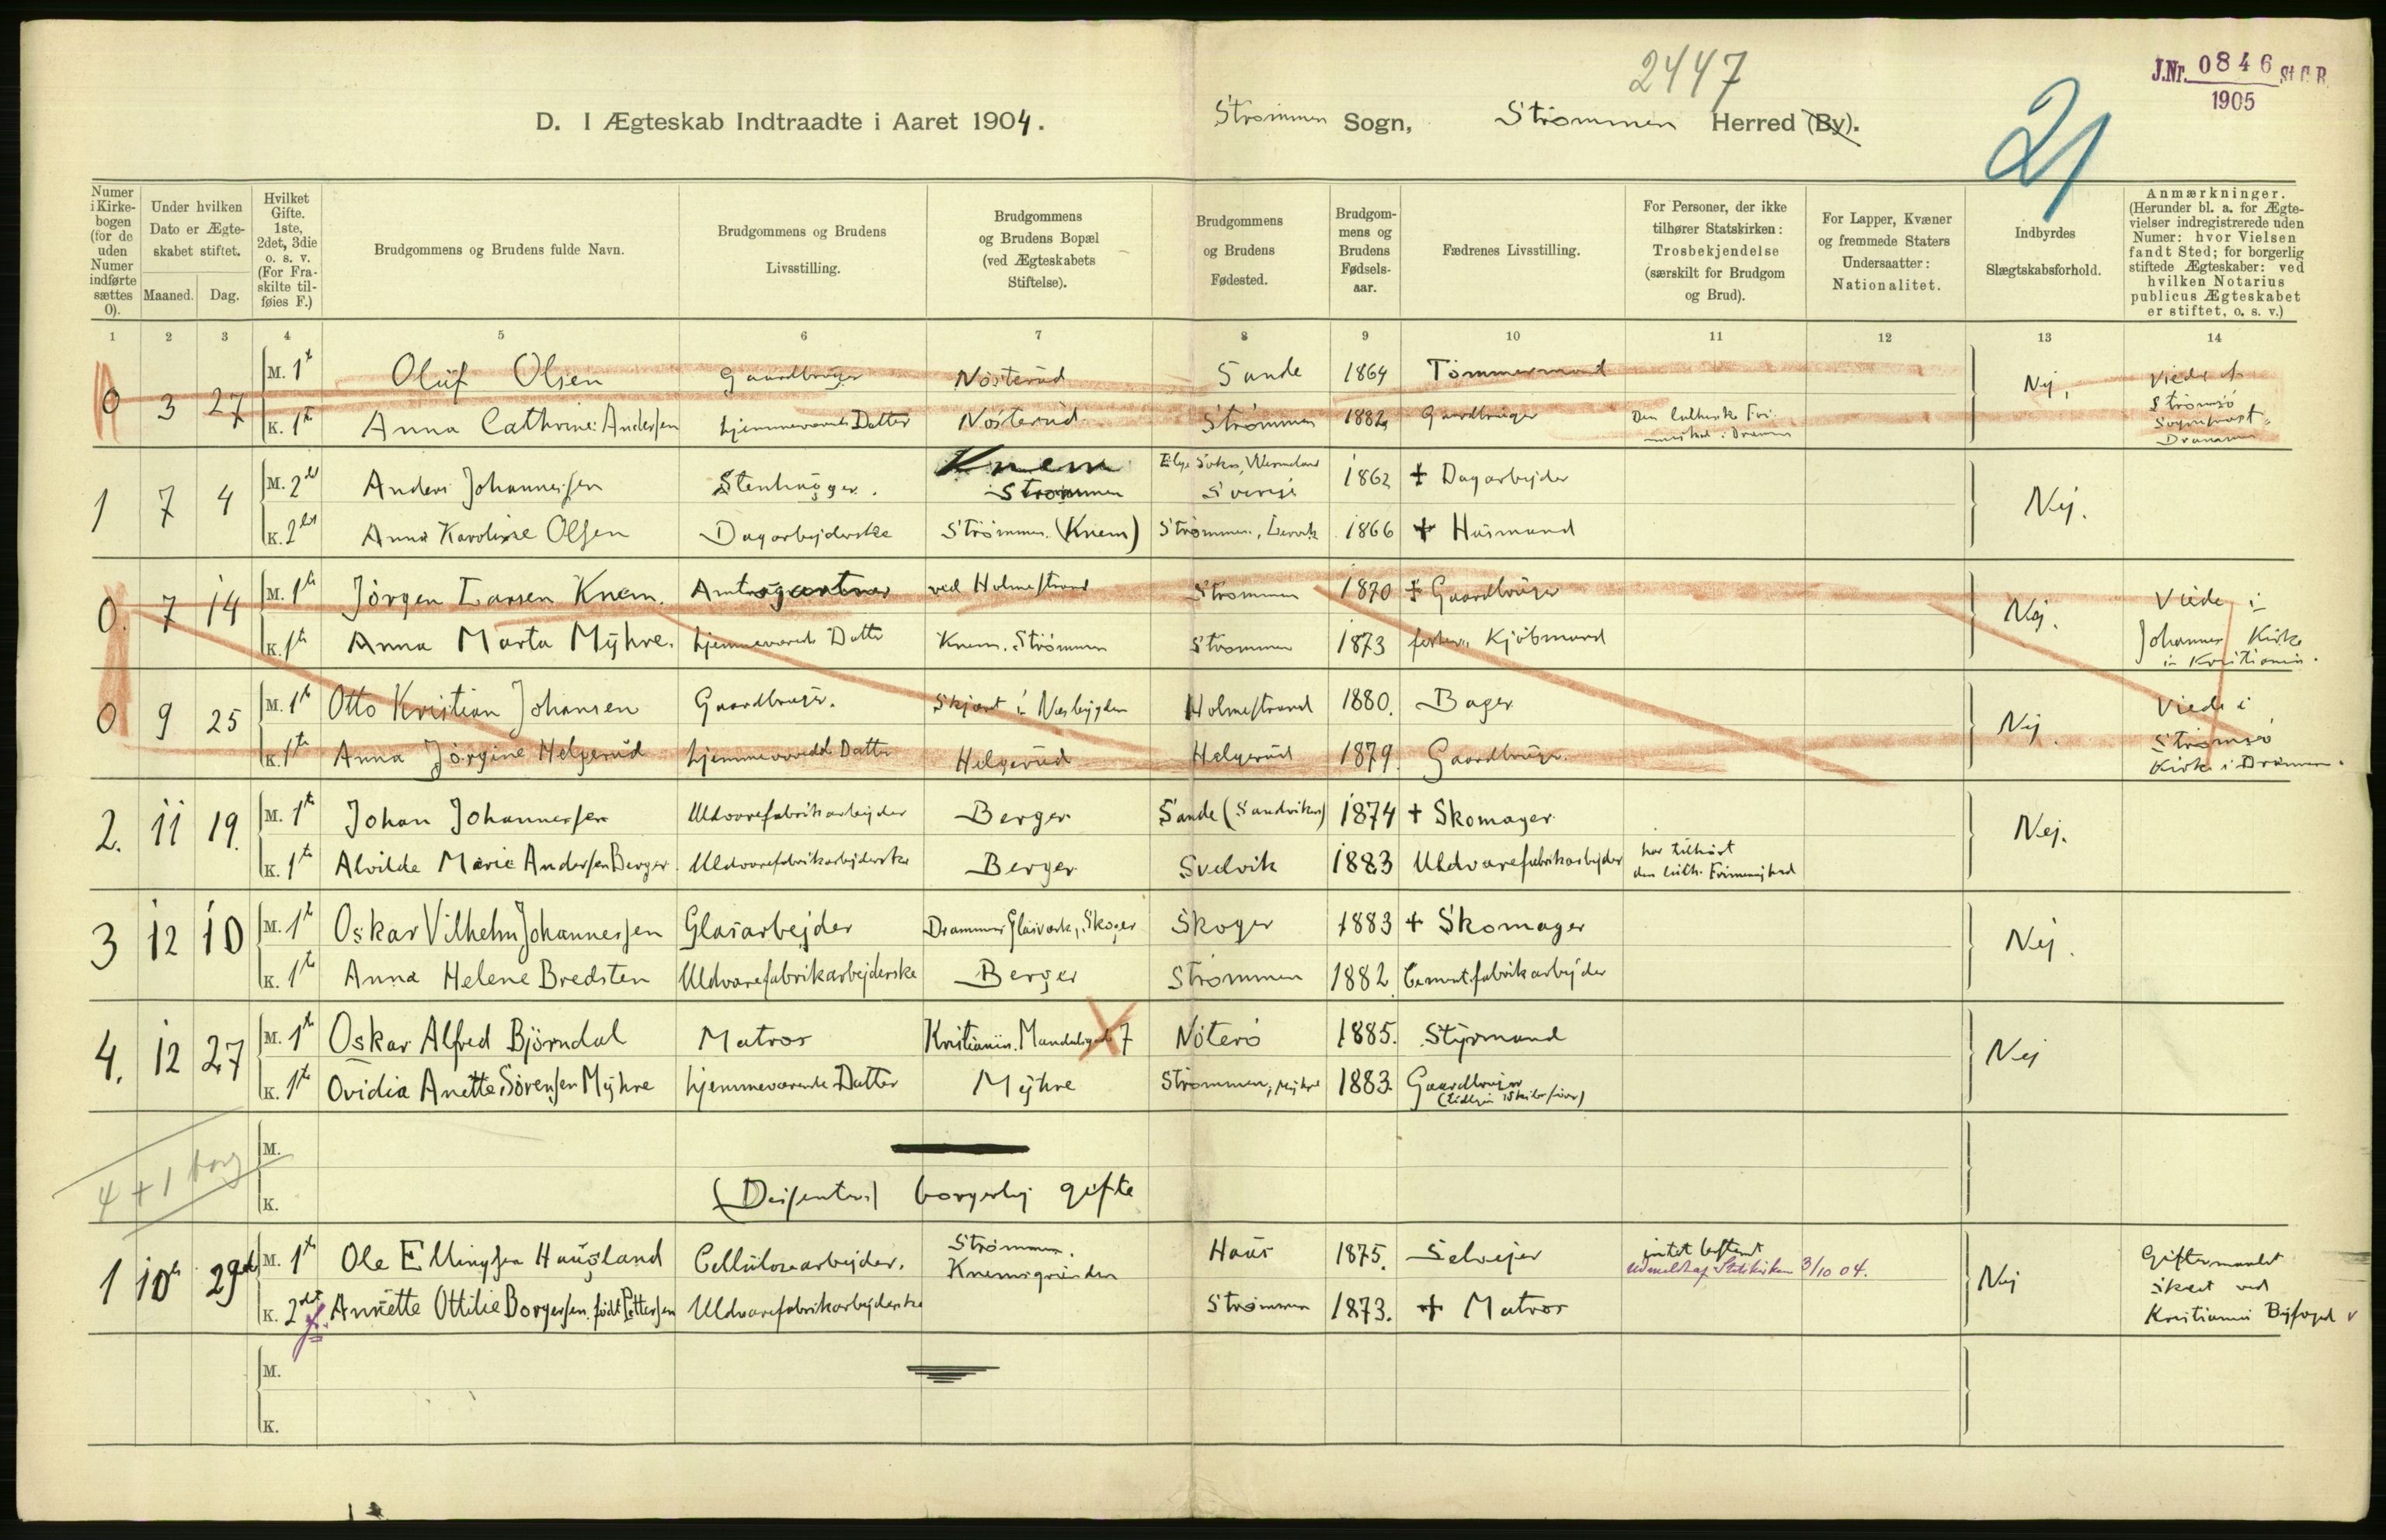 2447
J.Nr. 0846 St.C.B.
1905
21
D. I Ægteskab Indtraadte i Aaret 1904. Strømmen Sogn, Strømmen Herred (By).
Numer i Kirkebogen (for de uden Numer indførte sættes 0).
Under hvilken Dato er Ægteskabet stiftet.
Maaned. Dag.
Hvilket Gifte. 1ste, 2det, 3die o. s. v. (For Fraskilte tilføies F.)
Brudgommens og Brudens fulde Navn.
Brudgommens og Brudens Livsstilling.
Brudgommens og Brudens Bopæl (ved Ægteskabets Stiftelse).
Brudgommens og Brudens Fødested.
Brudgommens og Brudens Fødselsaar.
Fædrenes Livsstilling.
For Personer, der ikke tilhører Statskirken: Trosbekjendelse (særskilt for Brudgom og Brud).
For Lapper, Kvæner og fremmede Staters Undersaatter: Nationalitet.
Indbyrdes Slægtskabsforhold.
Anmærkninger. (Herunder bl. a. for Ægtevielser indregistrerede uden Numer: hvor Vielsen fandt Sted; for borgerlig stiftede Ægteskaber: ved hvilken Notarius publicus Ægteskabet er stiftet, o. s. v.)
1 2 3 4 5 6 7 8 9 10 11 12 13 14
0 3 27 M. 1te Oluf Olsen Gaardbruger Nøsterud Sande 1864 Tømmermand Nej. Viede af
K. 1te Anna Cathrine Andersen hjemmeværende Datter Nøsterud. Strømmen 1882 Gaardbruger Den lutherske Fri-
Strømsø
Drammen
1 7 4 M. 2det Anders Johannessen Stenhugger. Knem Strømmen Elgå Sokn, Wermeland Sverige 1862 + Dagarbejder Nej.
K. 2det Anna Karoline Olsen Dagarbejderske Strømmen. (Knem) Strømmen, 1866 + Husmand
0. 7 14 M. 1te Jørgen Larsen Knem. Amtsgartner ved Holmestrand Strømmen 1870 + Gaardbruger Nej. Viede i
K. 1te Anna Marta Myhre. hjemmeværende Datter Knem. Strømmen Strømmen 1873 Kjøbmand Johannes Kirke
i Kristiania.
0 9 25 M. 1te Otto Kristian Johansen Gaardbruger. Skjært i Næsbygden Holmestrand 1880. Bager Nej. Viede i
K. 1te Anna Jørgine Helgerud hjemmeværende Datter Helgerud Helgerud 1879 Gaardbruger. Strømsø
Kirke i Drammen.
2. 11 19. M. 1te Johan Johannessen Uldvarefabrikarbejder Berger Sande (Sandviken) 1874 + Skomager Nej.
K. 1te Alvilde Marie Andersen Berger. Uldvarefabrikarbejderske Berger. Svelvik 1883 Uldvarefabrikarbejder har tilhørt
den luth. Frimenighed
3 12 10 M. 1te Oskar Vilhelm Johannessen Glasarbejder Drammens Glasværk, Skoger Skoger 1883 + Skomager Nej.
K. 1te Anna Helene Bredsten Uldvarefabrikarbejderske Berger Strømmen 1882 Cementfabrikarbejder
4. 12 27 M. 1te Oskar Alfred Bjørndal Matros Kristiania. Mandalsgade 7 Nøterø 1885. Styrmand Nej
K. 1te Ovidia Anette Sørensen Myhre hjemmeværende Datter Myhre Strømmen, Myhre 1883. Gaardbruger
(tidligere Skibsfører)
4 + 1 borg M.
K. (Dissenter) borgerlig gifte
1 10de 29de M. 1te Ole Ellingsen Haugland Cellulosearbejder. Strømmen. Haus 1875. Selvejer intet bestemt Nej Giftermaalet
Knemsgrænden Udmeldt af Statskirken 3/10 04. skeet ved
K. 2det f. Annette Ottilie Borgersen. født Pettersen Uldvarefabrikarbejderske Strømmen 1873. + Matros Kristiania Byfoged
M.
K.